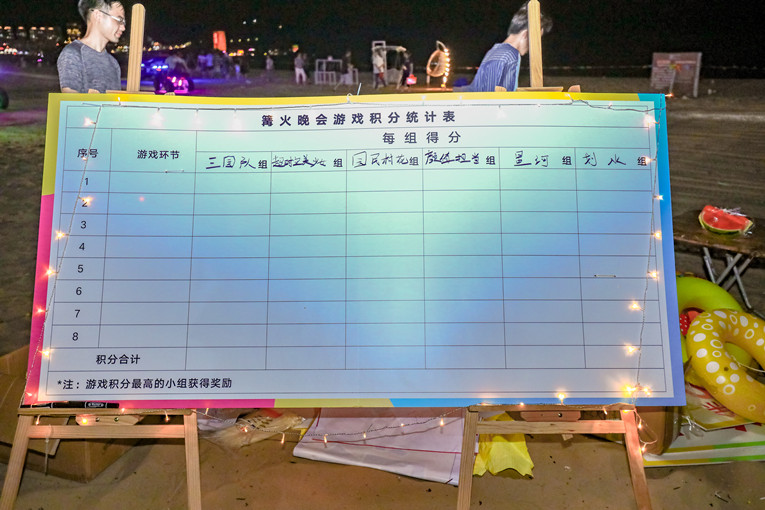 篝火晚会游戏积分统计表
序号 游戏环节 每组得分
三国队组 超时空美女组 国民村花组 颜值担当组 星河组 划水组
1
2
3
4
5
6
7
8
积分合计
*注：游戏积分最高的小组获得奖励